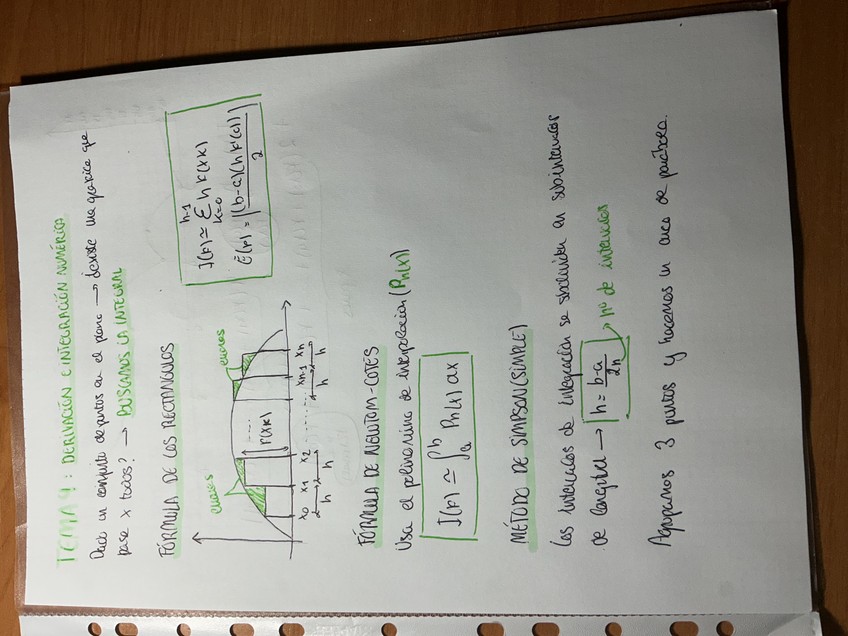 TEMA 9: DERIVACIÓN E INTEGRACIÓN NUMÉRICA
Dado un conjunto de puntos en el plano → ¿existe una gráfica que
pase x todos? → BUSCAMOS LA INTEGRAL
FÓRMULA DE LOS RECTÁNGULOS
errores
errores
f(xk)
x0 x1 x2 xn-1 xn
h h h h
I(f) ≃ Σ h f(xk)
n-1
k=0
E(f) = |(b-a)(h f'(c))|
2
FÓRMULA DE NEWTOM-COTES
Usa el polinomino de interpolación (Pn(x))
I(f) ≃ ∫ab Pn(x) dx
MÉTODO DE SIMPSON (SIMPLE)
Los intervalos de integración se subdividen en subintervalos
de longitud → h = b-a / 2n → nº de intervalos
Agrupamos 3 puntos y hacemos un arco de parábola.